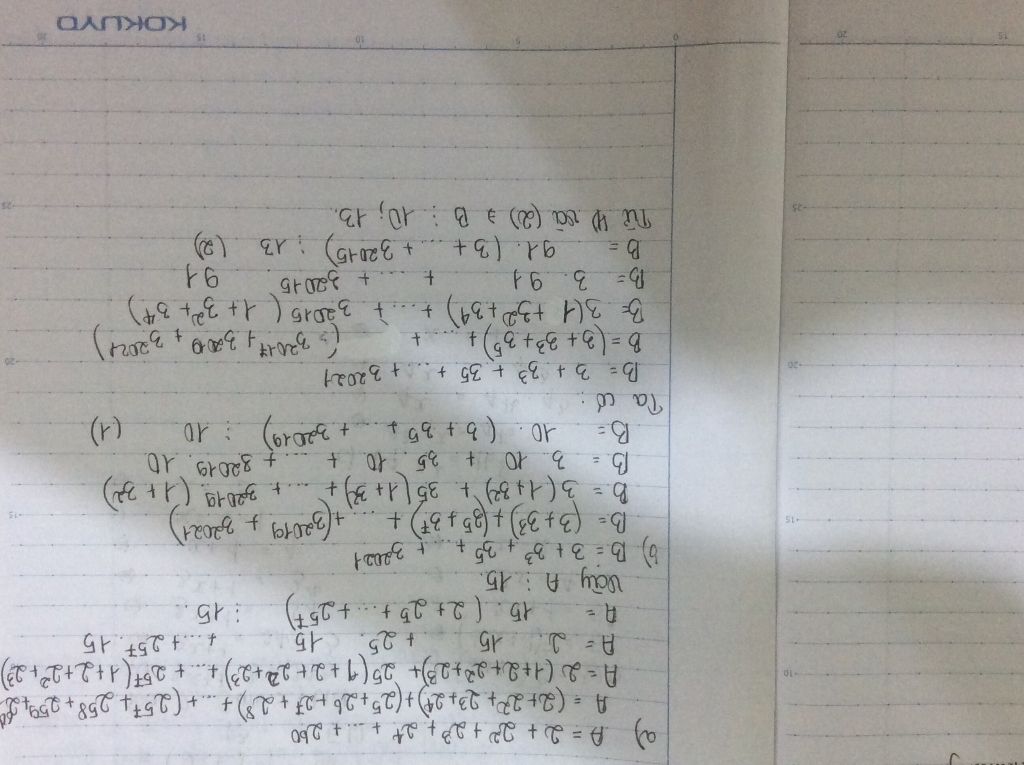 a) A = 2 + 2² + 2³ + 2⁴ + ... + 2⁶⁰
A = (2+2²+2³+2⁴)+(2⁵+2⁶+2⁷+2⁸)+...+(2⁵⁷+2⁵⁸+2⁵⁹+2⁶⁰)
A = 2(1+2+2²+2³)+2⁵(1+2+2²+2³)+...+2⁵⁷(1+2+2²+2³)
A = 2. 15 + 2⁵. 15 + ...+2⁵⁷. 15
A = 15. (2+2⁵+...+2⁵⁷) ⋮ 15.
Vậy A ⋮ 15.
b) B = 3 + 3³ + 3⁵ + ... + 3²⁰²¹
B = (3+3³)+(3⁵+3⁷) + ...+(3²⁰¹⁹+3²⁰²¹)
B = 3(1+3²) + 3⁵(1+3²)+ ... + 3²⁰¹⁹. (1+3²)
B = 3. 10 + 3⁵. 10 + ... + 3²⁰¹⁹. 10
B = 10. (3+3⁵ + ... + 3²⁰¹⁹) ⋮ 10 (1)
Ta có :
B = 3 + 3³ + 3⁵ + ... + 3²⁰²¹
B = (3+3³+3⁵)+ ... + (3²⁰¹⁷+3²⁰¹⁹+3²⁰²¹)
B= 3(1+3²+3⁴) + ... + 3²⁰¹⁵ (1+3²+3⁴)
B= 3. 91 + ... + 3²⁰¹⁵. 91
B = 91. (3+ ... + 3²⁰¹⁵) ⋮ 13 (2)
Từ (1) và (2) ⇒ B ⋮ 10; 13.
KOKUYO